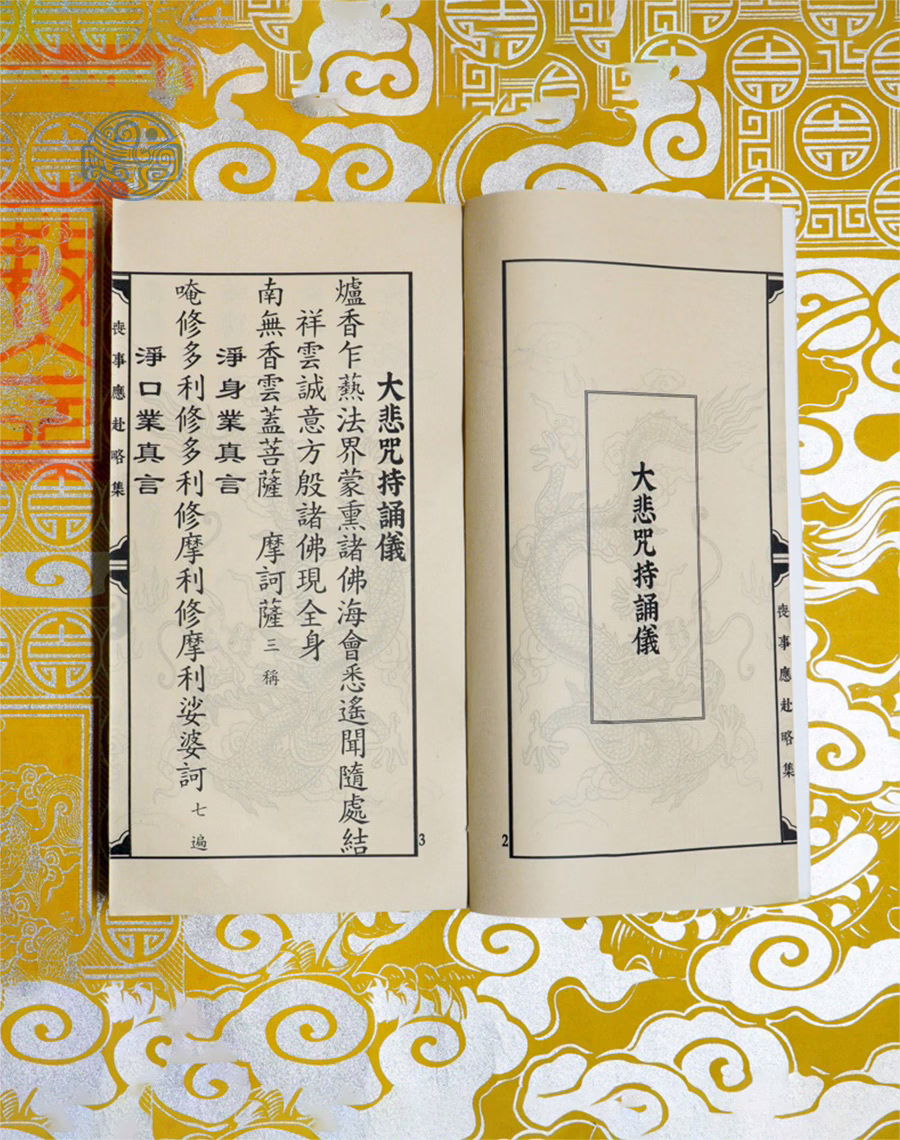 大悲咒持誦儀
喪事應赴略集
2
大悲咒持誦儀
爐香乍爇法界蒙熏諸佛海會悉遙聞隨處結
祥雲誠意方殷諸佛現全身
南無香雲蓋菩薩　摩訶薩 三稱
淨身業真言
唵修多利修多利修摩利修摩利娑婆訶 七遍
淨口業真言
喪事應赴略集
3